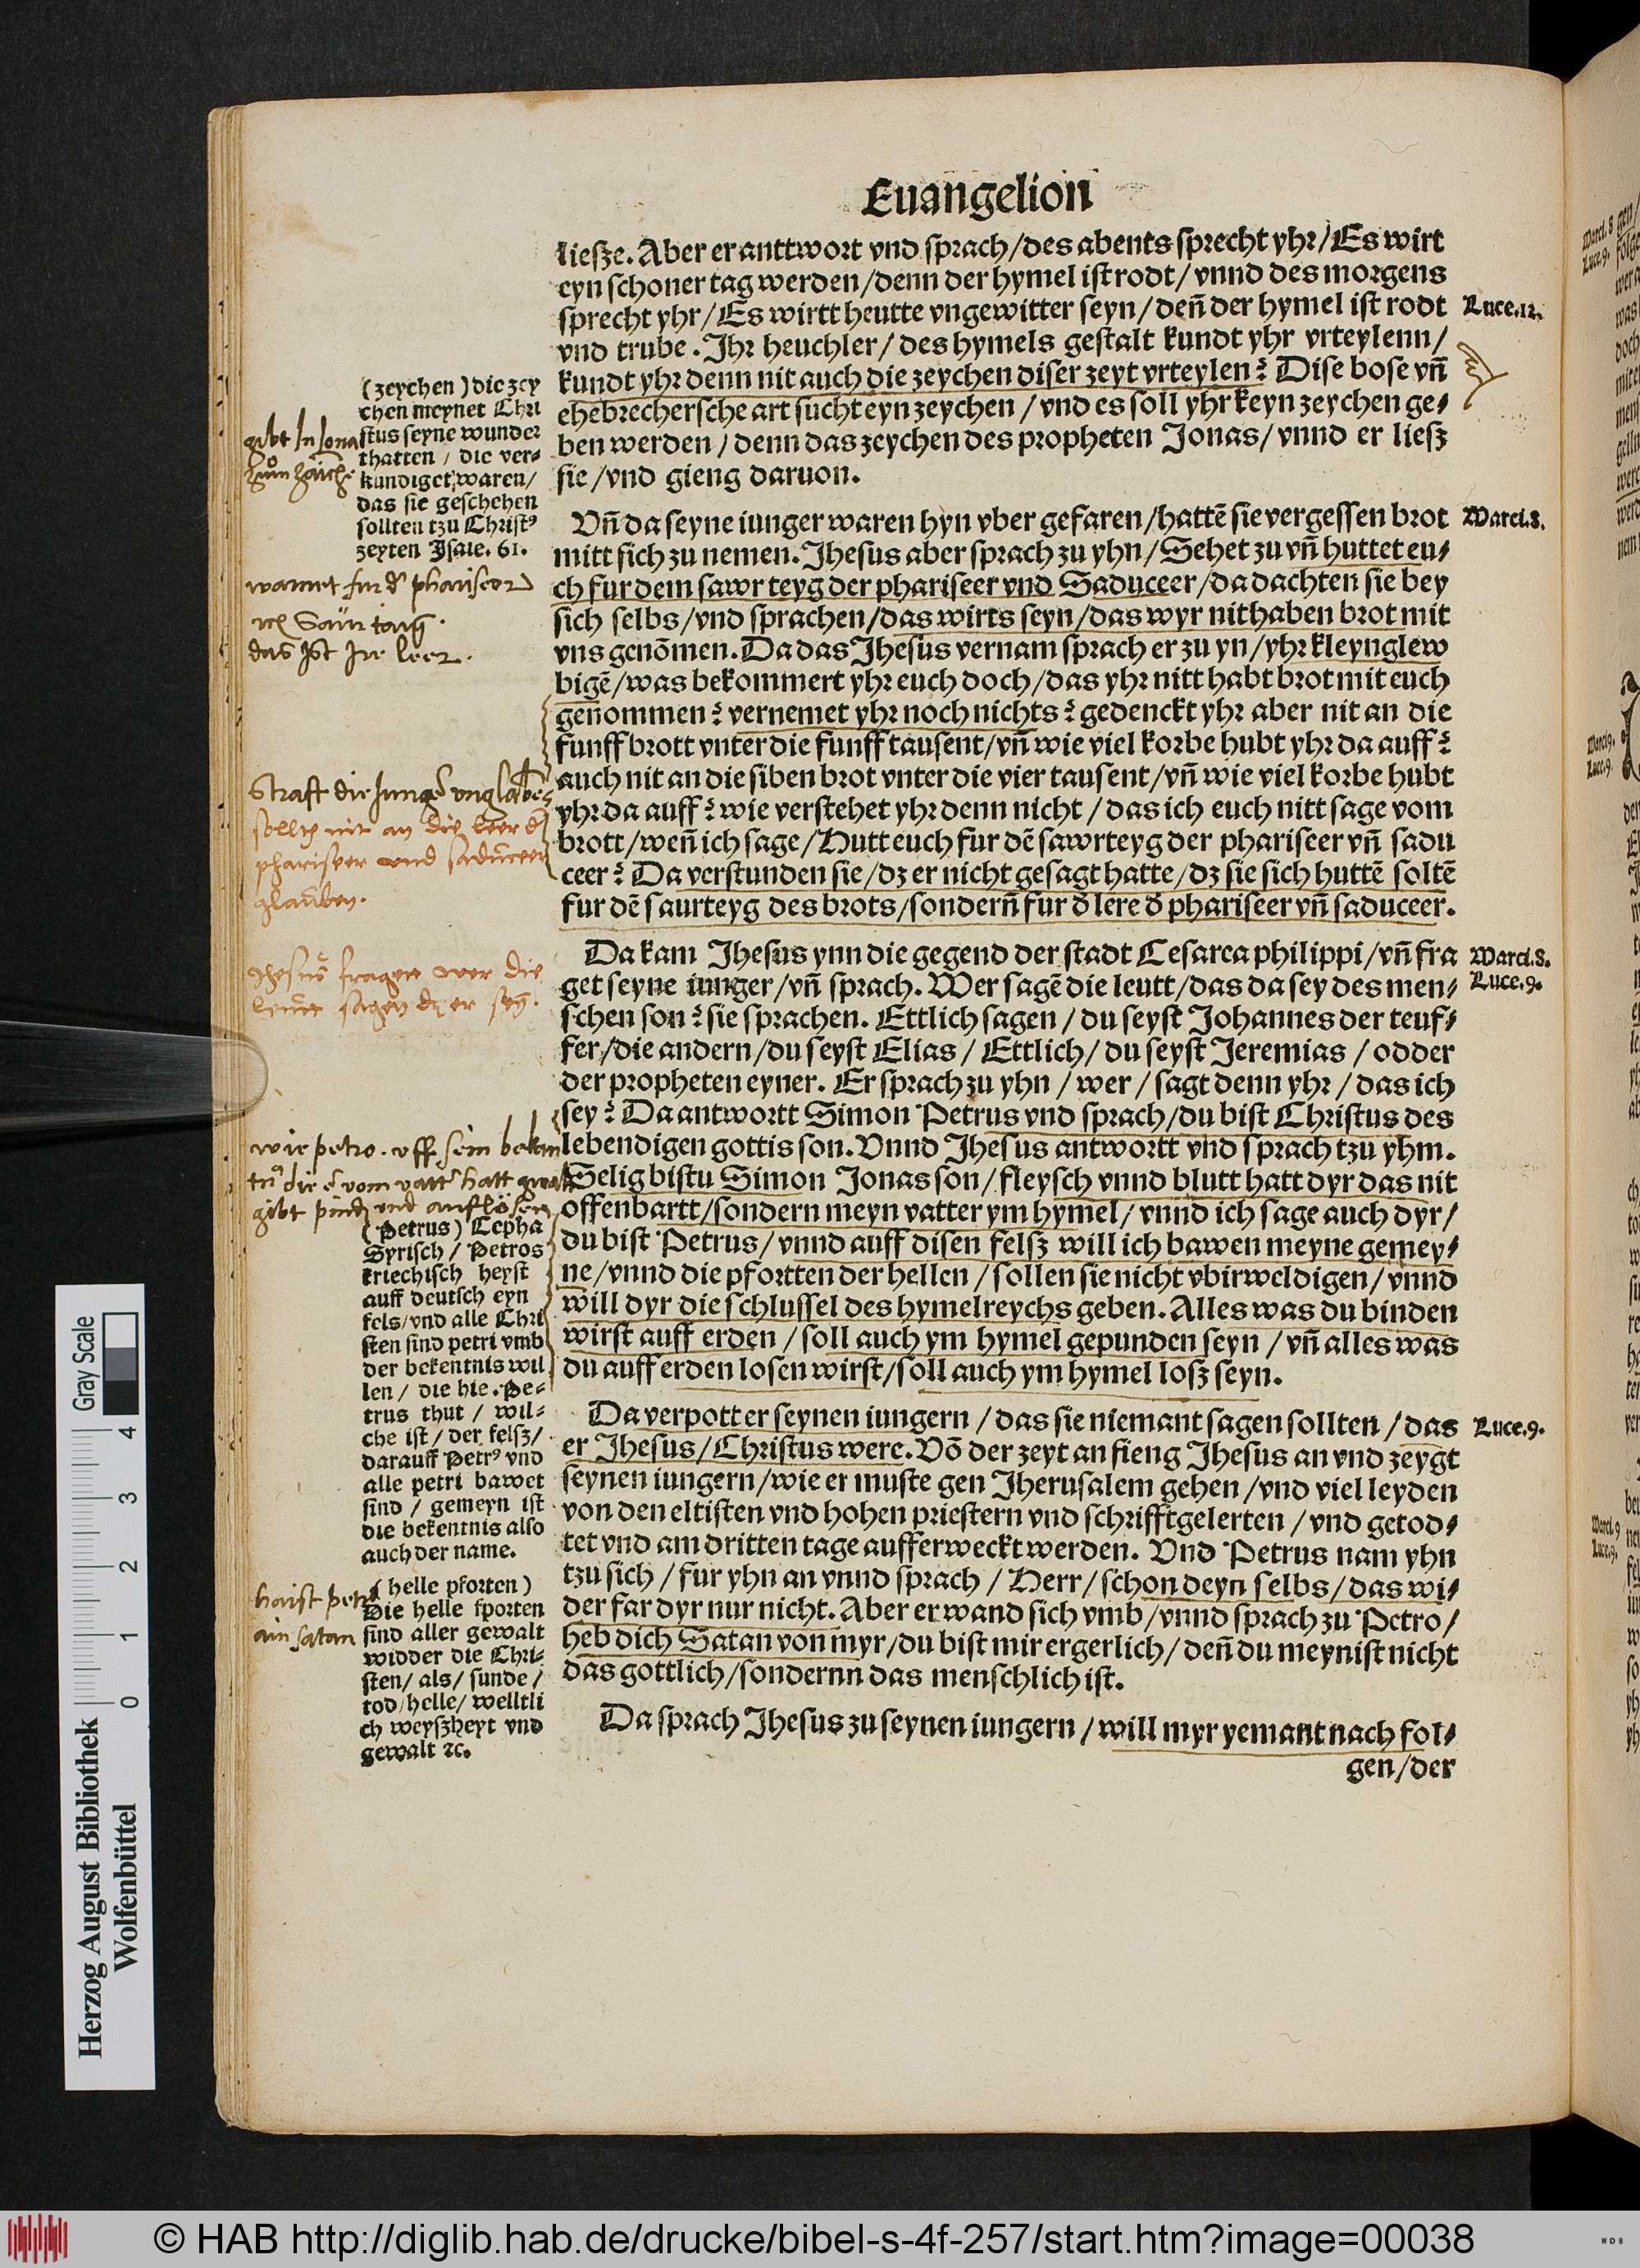 Euangelion
liesze. Aber er anttwort vnd sprach/des abents sprecht yhr/Es wirt
eyn schoner tag werden/denn der hymel ist rodt/vnnd des morgens
sprecht yhr/Es wirtt heutte vngewitter seyn/deñ der hymel ist rodt
vnd trube. Ihr heuchler/des hymels gestalt kundt yhr vrteylenn/
kundt yhr denn nit auch die zeychen diser zeyt vrteylen? Dise bose vñ
ehebrechersche art sucht eyn zeychen/vnd es soll yhr keyn zeychen ge⸗
ben werden/denn das zeychen des propheten Jonas/vnnd er liesz
sie/vnd gieng daruon.
Luce.12.
(zeychen) die zey
chen meynet Chri
stus seyne wunder
thatten/die ver⸗
kundiget waren/
das sie geschehen
sollten tzu Christꝰ
zeyten Isaie. 61.
Vñ da seyne iunger waren hyn vber gefaren/hattẽ sie vergessen brot
mitt sich zu nemen. Jhesus aber sprach zu yhn/Sehet zu vñ huttet eu⸗
ch fur dem sawr teyg der phariseer vnd Saduceer/da dachten sie bey
sich selbs/vnd sprachen/das wirts seyn/das wyr nit haben brot mit
vns genõmen. Da das Jhesus vernam sprach er zu yn/yhr kleynglew
bigẽ/was bekommert yhr euch doch/das yhr nitt habt brot mit euch
genommen? vernemet yhr noch nichts? gedenckt yhr aber nit an die
funff brott vnter die funff tausent/vñ wie viel korbe hubt yhr da auff?
auch nit an die siben brot vnter die vier tausent/vñ wie viel korbe hubt
yhr da auff? wie verstehet yhr denn nicht/das ich euch nitt sage vom
brott/weñ ich sage/Hutt euch fur dẽ sawrteyg der phariseer vñ sadu
ceer? Da verstunden sie/dz er nicht gesagt hatte/dz sie sich huttẽ soltẽ
fur dẽ saurteyg des brots/sonderñ fur d̄ lere d̄ phariseer vñ saduceer.
Marci.8.
warnet fur d' phariseer
Saür taig.
das Ist Ire leer.
Straft die Junger
sollten nit an die leer d'
phariseer vnd saduceer
glauben.
Da kam Jhesus ynn die gegend der stadt Cesarea philippi/vñ fra
get seyne iunger/vñ sprach. Wer sagẽ die leutt/das da sey des men⸗
schen son? sie sprachen. Ettlich sagen/du seyst Johannes der teuf⸗
fer/die andern/du seyst Elias/Ettlich/du seyst Jeremias/odder
der propheten eyner. Er sprach zu yhn/wer/sagt denn yhr/das ich
sey? Da antwortt Simon Petrus vnd sprach/du bist Christus des
lebendigen gottis son. Vnnd Jhesus antwortt vnd sprach tzu yhm.
Selig bistu Simon Jonas son/fleysch vnnd blutt hatt dyr das nit
offenbartt/sondern meyn vatter ym hymel/vnnd ich sage auch dyr/
du bist Petrus/vnnd auff disen felsz will ich bawen meyne gemey⸗
ne/vnnd die pfortten der hellen/sollen sie nicht vbirweldigen/vnnd
will dyr die schlussel des hymelreychs geben. Alles was du binden
wirst auff erden/soll auch ym hymel gepunden seyn/vñ alles was
du auff erden losen wirst/soll auch ym hymel losz seyn.
Marci.8.
Luce.9.
Jhesus fragett wer die
leutt sagen dz er sey.
wie petro. vff sein bekan
(Petrus) Cepha
Syrisch/Petros
kriechisch heyst
auff deutsch eyn
fels/vnd alle Chri
sten sind petri vmb
der bekentnis wil
len/die hie. Pe⸗
trus thut/wil⸗
che ist/der felsz/
darauff Petrꝰ vnd
alle petri bawet
sind/gemeyn ist
die bekentnis also
auch der name.
Da verpott er seynen iungern/das sie niemant sagen sollten/das
er Jhesus/Christus were. Võ der zeyt an fieng Jhesus an vnd zeygt
seynen iungern/wie er muste gen Jherusalem gehen/vnd viel leyden
von den eltisten vnd hohen priestern vnd schrifftgelerten/vnd getod⸗
tet vnd am dritten tage aufferweckt werden. Vnd Petrus nam yhn
tzu sich/fur yhn an vnnd sprach/Herr/schon deyn selbs/das wi⸗
der far dyr nur nicht. Aber er wand sich vmb/vnnd sprach zu Petro/
heb dich Satan von myr/du bist mir ergerlich/deñ du meynist nicht
das gottlich/sondernn das menschlich ist.
Luce.9.
haist petrū
ain satan
(helle pforten)
Die helle pforten
sind aller gewalt
widder die Chri⸗
sten/als/sunde/
tod/helle/welltli
ch weyszheyt vnd
gewalt ⁊c.
Da sprach Jhesus zu seynen iungern/will myr yemant nach fol⸗
gen/der
Herzog August Bibliothek
Wolfenbüttel
Gray Scale
0 1 2 3 4
© HAB http://diglib.hab.de/drucke/bibel-s-4f-257/start.htm?image=00038
WDB